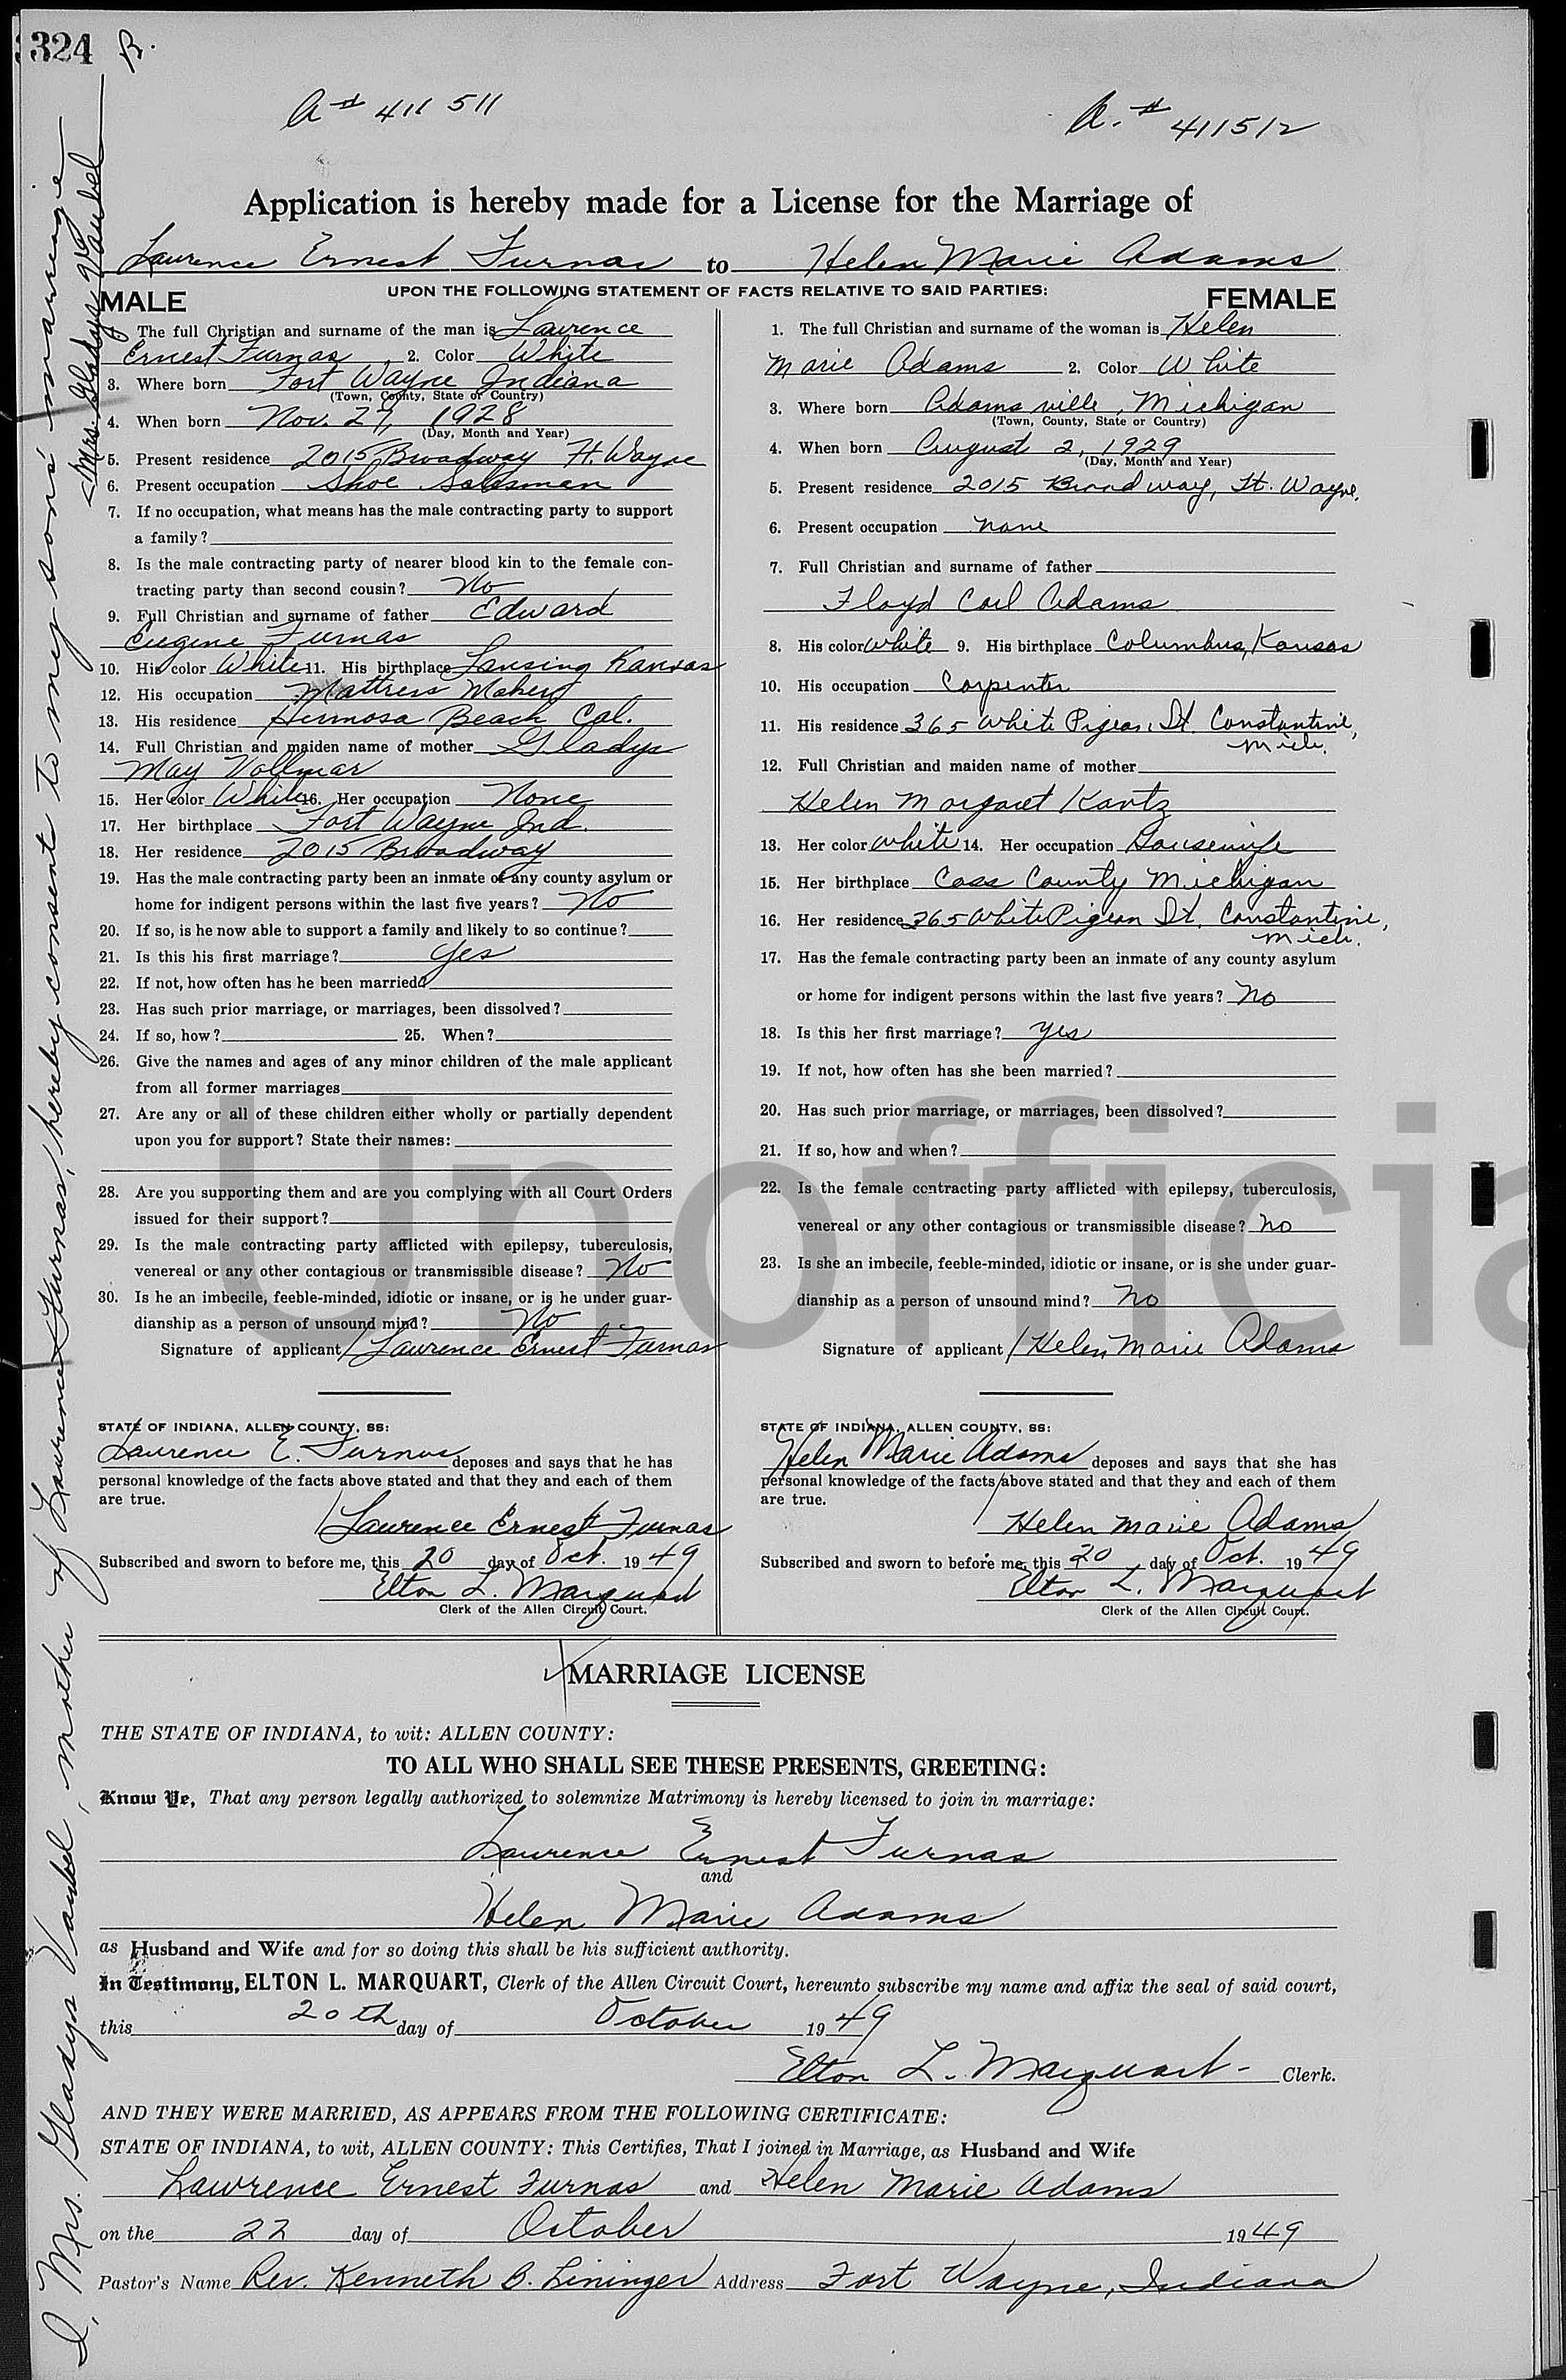 324 B.
A# 411 511
A.# 411512
Application is hereby made for a License for the Marriage of
Laurence Ernest Furnas to Helen Marie Adams
UPON THE FOLLOWING STATEMENT OF FACTS RELATIVE TO SAID PARTIES:
MALE
The full Christian and surname of the man is Laurence
Ernest Furnas 2. Color White
3. Where born Fort Wayne Indiana
(Town, County, State or Country)
4. When born Nov. 27, 1928
(Day, Month and Year)
5. Present residence 2015 Broadway Ft. Wayne
6. Present occupation Shoe Salesman
7. If no occupation, what means has the male contracting party to support
a family?
8. Is the male contracting party of nearer blood kin to the female con-
tracting party than second cousin? No
9. Full Christian and surname of father Edward
Eugene Furnas
10. His color White 11. His birthplace Lansing Kansas
12. His occupation Mattress Maker
13. His residence Hermosa Beach Cal.
14. Full Christian and maiden name of mother Gladys
May Vollmar
15. Her color White 16. Her occupation None
17. Her birthplace Fort Wayne Ind.
18. Her residence 2015 Broadway
19. Has the male contracting party been an inmate of any county asylum or
home for indigent persons within the last five years? No
20. If so, is he now able to support a family and likely to so continue?
21. Is this his first marriage? Yes
22. If not, how often has he been married?
23. Has such prior marriage, or marriages, been dissolved?
24. If so, how? 25. When?
26. Give the names and ages of any minor children of the male applicant
from all former marriages
27. Are any or all of these children either wholly or partially dependent
upon you for support? State their names:
28. Are you supporting them and are you complying with all Court Orders
issued for their support?
29. Is the male contracting party afflicted with epilepsy, tuberculosis,
venereal or any other contagious or transmissible disease? No
30. Is he an imbecile, feeble-minded, idiotic or insane, or is he under guar-
dianship as a person of unsound mind? No
Signature of applicant Laurence Ernest Furnas
STATE OF INDIANA, ALLEN COUNTY, SS:
Laurence E. Furnas deposes and says that he has
personal knowledge of the facts above stated and that they and each of them
are true.
Laurence Ernest Furnas
Subscribed and sworn to before me, this 20 day of Oct. 1949
Elton L. Marquart
Clerk of the Allen Circuit Court.
FEMALE
1. The full Christian and surname of the woman is Helen
Marie Adams 2. Color White
3. Where born Adamsville, Michigan
(Town, County, State or Country)
4. When born August 2, 1929
(Day, Month and Year)
5. Present residence 2015 Broadway, Ft. Wayne.
6. Present occupation none
7. Full Christian and surname of father
Floyd Carl Adams
8. His color white 9. His birthplace Columbus, Kansas
10. His occupation Carpenter
11. His residence 365 White Pigeon St. Constantine,
Mich.
12. Full Christian and maiden name of mother
Helen Margaret Kantz
13. Her color white 14. Her occupation Housewife
15. Her birthplace Cass County Michigan
16. Her residence 365 White Pigeon St. Constantine,
Mich.
17. Has the female contracting party been an inmate of any county asylum
or home for indigent persons within the last five years? No
18. Is this her first marriage? yes
19. If not, how often has she been married?
20. Has such prior marriage, or marriages, been dissolved?
21. If so, how and when?
22. Is the female contracting party afflicted with epilepsy, tuberculosis,
venereal or any other contagious or transmissible disease? No
23. Is she an imbecile, feeble-minded, idiotic or insane, or is she under guar-
dianship as a person of unsound mind? No
Signature of applicant Helen Marie Adams
STATE OF INDIANA, ALLEN COUNTY, SS:
Helen Marie Adams deposes and says that she has
personal knowledge of the facts above stated and that they and each of them
are true.
Helen Marie Adams
Subscribed and sworn to before me, this 20 day of Oct. 1949
Elton L. Marquart
Clerk of the Allen Circuit Court.
Unofficia
MARRIAGE LICENSE
THE STATE OF INDIANA, to wit: ALLEN COUNTY:
TO ALL WHO SHALL SEE THESE PRESENTS, GREETING:
Know Ye, That any person legally authorized to solemnize Matrimony is hereby licensed to join in marriage:
Laurence Ernest Furnas
and
Helen Marie Adams
as Husband and Wife and for so doing this shall be his sufficient authority.
In Testimony, ELTON L. MARQUART, Clerk of the Allen Circuit Court, hereunto subscribe my name and affix the seal of said court,
this 20th day of October 1949
Elton L. Marquart - Clerk.
AND THEY WERE MARRIED, AS APPEARS FROM THE FOLLOWING CERTIFICATE:
STATE OF INDIANA, to wit, ALLEN COUNTY: This Certifies, That I joined in Marriage, as Husband and Wife
Lawrence Ernest Furnas and Helen Marie Adams
on the 22 day of October 1949
Pastor's Name Rev. Kenneth B. Lininger Address Fort Wayne, Indiana
I, Mrs. Gladys Vaubel, mother of Lawrence Furnas, hereby consent to my son's marriage
Mrs. Gladys Vaubel